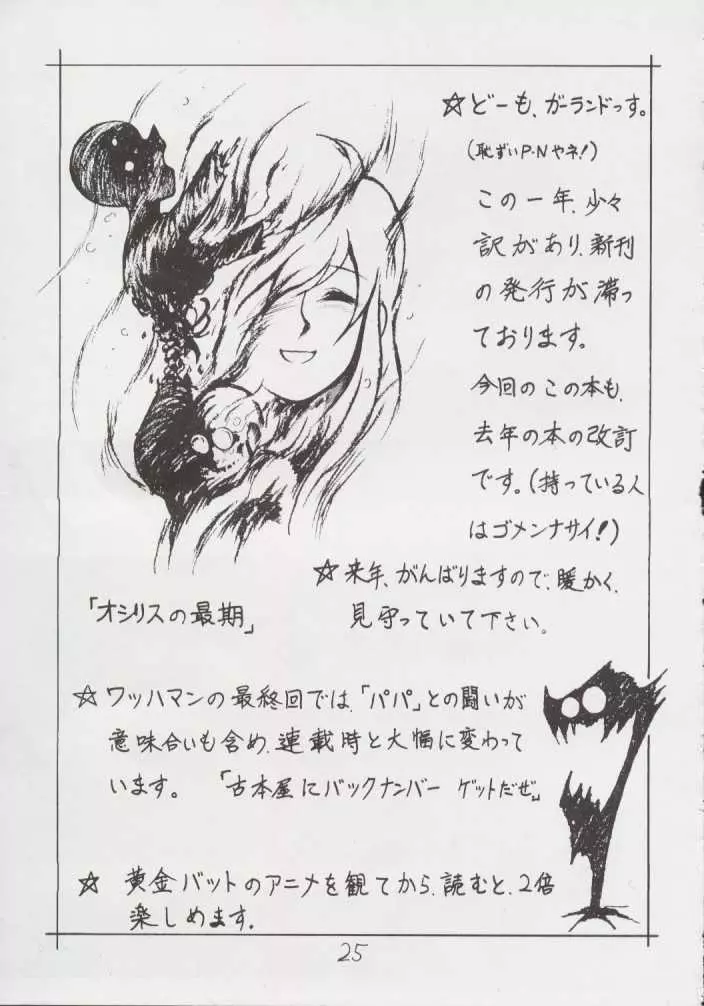 ☆どーも、ガーランドっす。
(恥ずいP.Nやネ!)
この一年、少々
訳があり、新刊
の発行が滞っ
ております。
今回のこの本も、
去年の本の改訂
です。(持っている人
はゴメンナサイ!)
☆来年、がんばりますので、暖かく、
見守っていて下さい。
「オシリスの最期」
☆ワッハマンの最終回では、「パパ」との闘いが
意味合いも含め、連載時と大幅に変わって
います。 「古本屋にバックナンバー ゲットだぜ」
☆ 黄金バットのアニメを観てから、読むと、2倍
楽しめます。
25